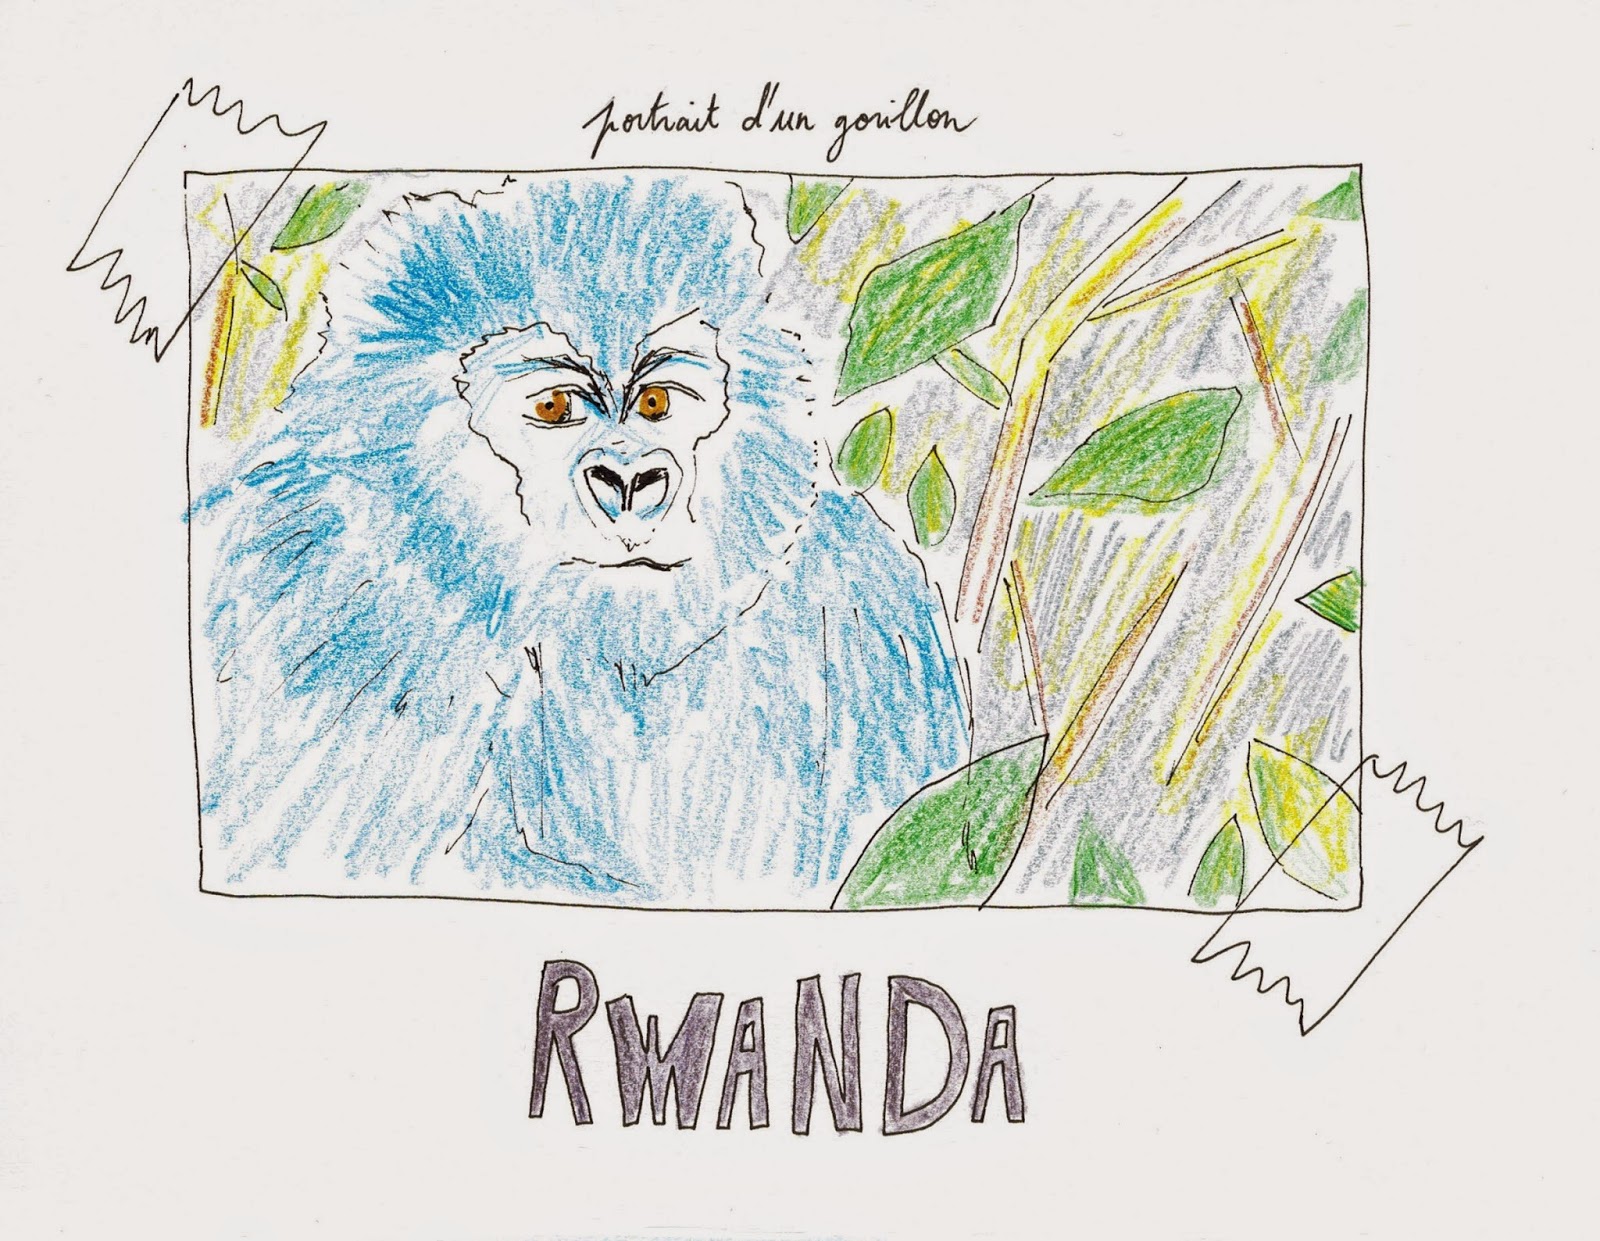 portrait d'un gorillon
RWANDA